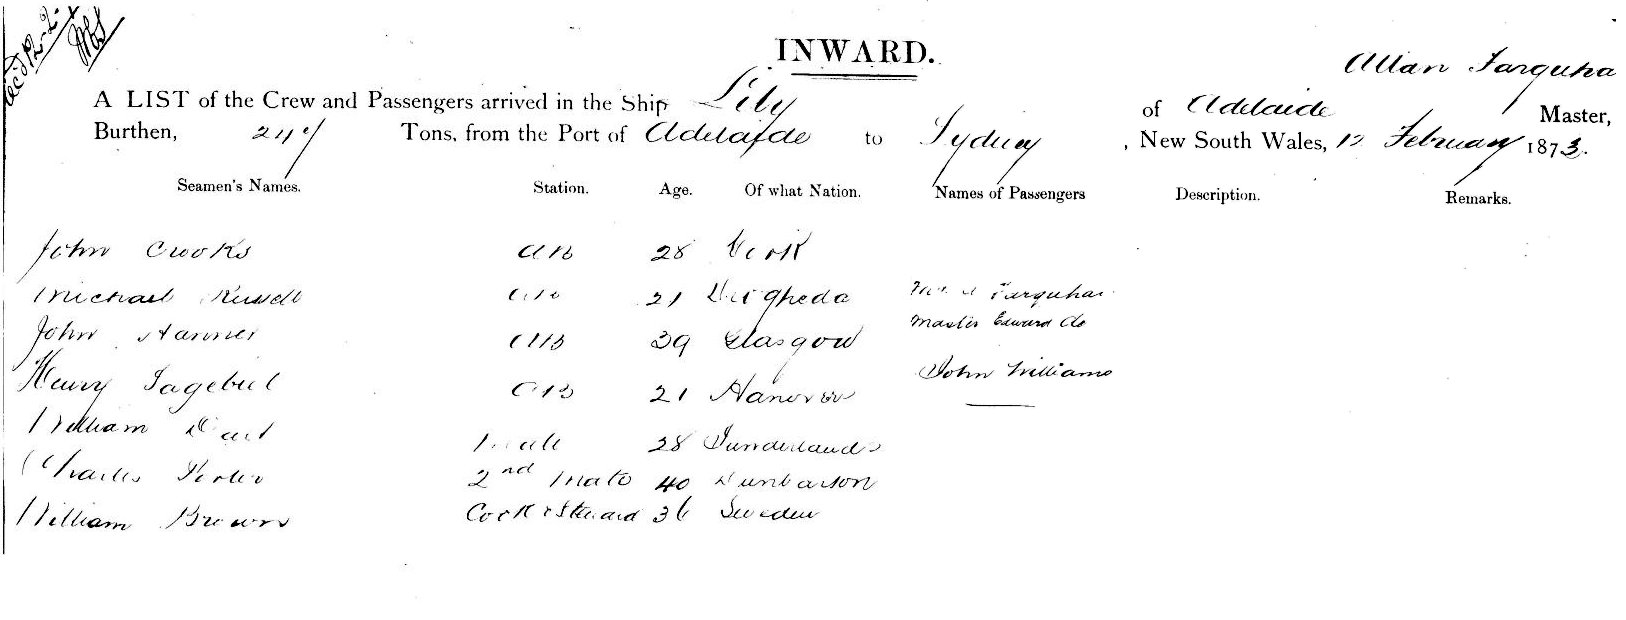 Rec'd 12-2-
INWARD.
Allan Farquha
A LIST of the Crew and Passengers arrived in the Ship Lily of Adelaide Master,
Burthen, Tons, from the Port of Adelaide to Sydney, New South Wales, 12 February 1873.
Seamen's Names. Station. Age. Of what Nation. Names of Passengers Description. Remarks.
John Crooks AB 28 Cork
Michael Russell AB 21 Drogheda Farquhar
Master Edward Do
John AB 39 Glasgow
John Williams
Henry AB 21 Hanover
William Mate 28 Sunderland
Charles Porter 2nd Mate 40 Dunbarton
William Brown Cook & Steward 36 Sweden